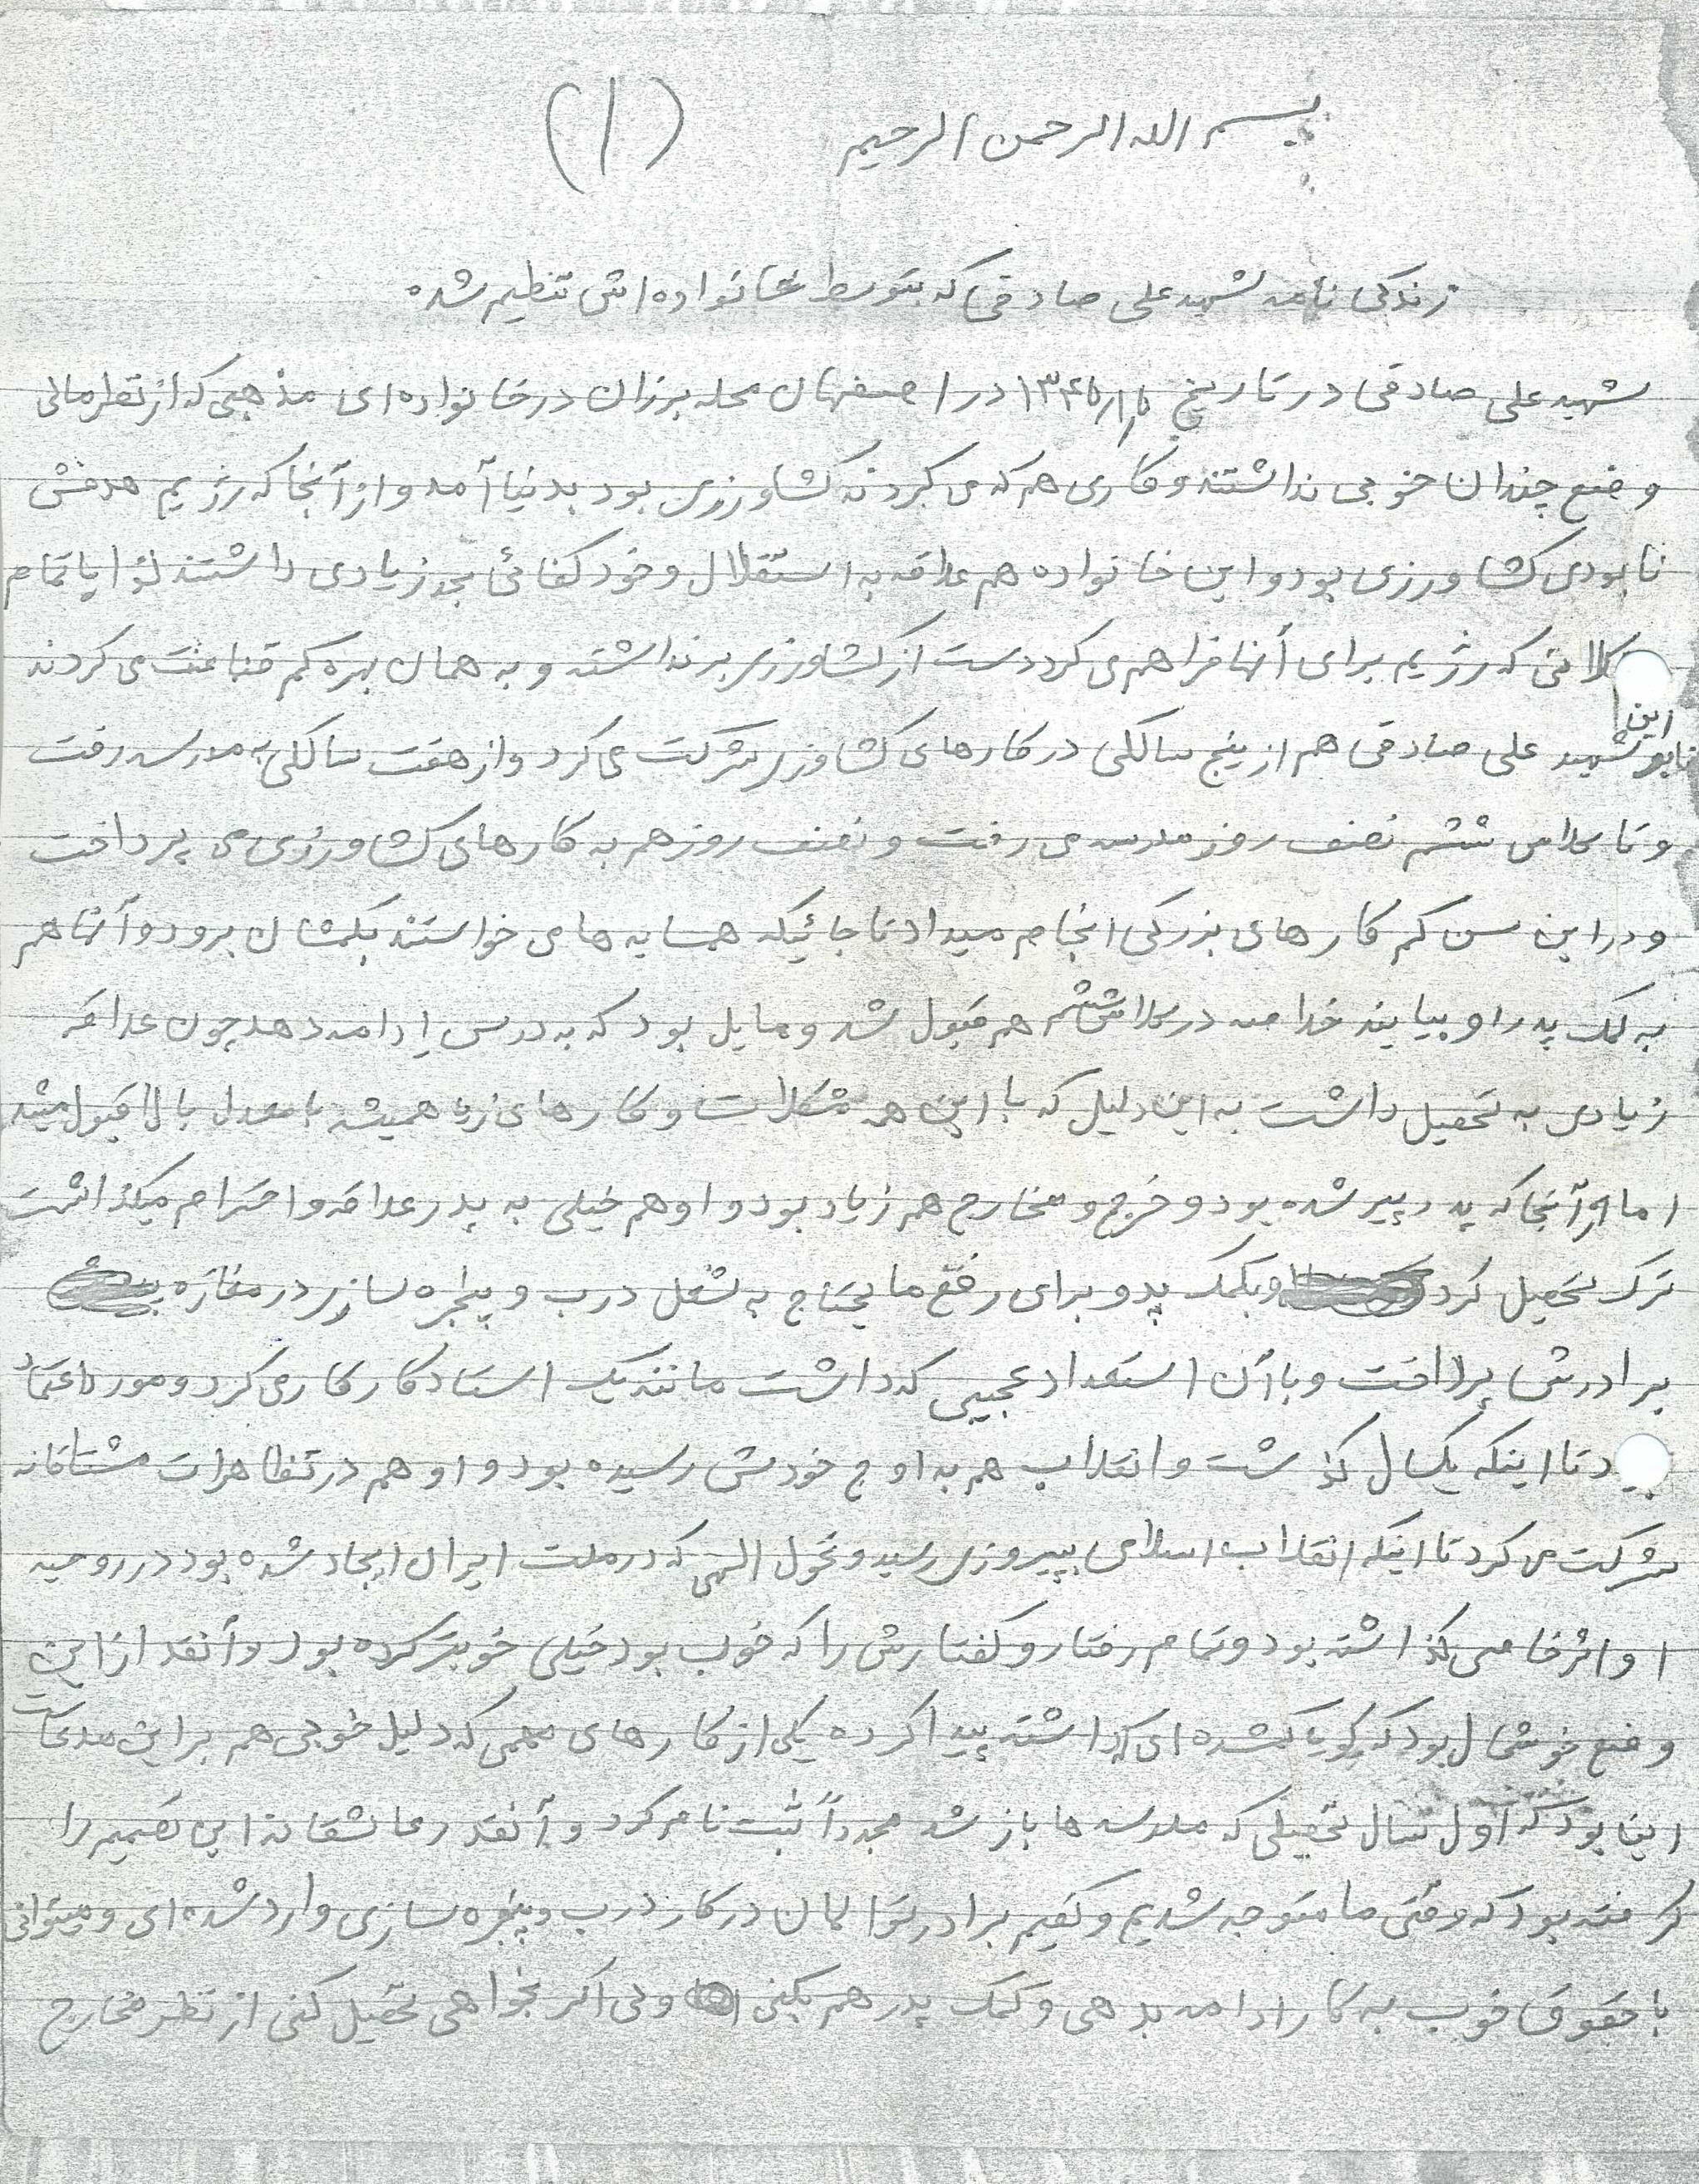 بسم الله الرحمن الرحیم (۱)
زندگی نامه شهید علی صادقی که بتوسط خانواده اش تنظیم شده
شهید علی صادقی در تاریخ در اصفهان محله برزان در خانواده ای مذهبی که از نظر مالی
وضع چندان خوبی نداشتند و کاری هم که می کردند کشاورزی بود بدنیا آمد و از آنجا که رژیم هدفش
نابودی کشاورزی بود و این خانواده هم علاقه به استقلال و خودکفائی بحد زیادی داشتند لذا با تمام
کلاتی که رژیم برای آنها فراهم می کرد دست از کشاورزی برنداشته و به همان بهره کم قناعت می کردند
این شهید علی صادقی هم از پنج سالگی در کارهای کشاورزی شرکت می کرد و از هفت سالگی به مدرسه رفت
و تا کلاس ششم نصف روز مدرسه می رفت و نصف روز هم به کارهای کشاورزی می پرداخت
و در این سن کم کارهای بزرگی انجام میداد تا جائیکه همسایه ها می خواستند بکمکشان برود و آنها هم
به کمک پدر او بیایند خلاصه در کلاس ششم هم قبول شد و مایل بود که به درس ادامه دهد چون علاقه
زیادی به تحصیل داشت به این دلیل که با این همه مشکلات و کارهای زیاد همیشه با معدل بالا قبول میشد
اما از آنجا که پدر پیر شده بود و خرج و مخارج هم زیاد بود و او هم خیلی به پدر علاقه و احترام میگذاشت
ترک تحصیل کرد و بکمک پدر و برای رفع مایحتاج به شغل درب و پنجره سازی در مغازه
برادرش پرداخت و با آن استعداد عجیبی که داشت مانند یک استادکار کار می کرد و مورد اعتماد
بود تا اینکه یکسال گذشت و انقلاب هم به اوج خودش رسیده بود و او هم در تظاهرات مشتاقانه
شرکت می کرد تا اینکه انقلاب اسلامی بپیروزی رسید و تحول الهی که در ملت ایران ایجاد شده بود در روحیه
او اثر خاصی گذاشته بود و تمام رفتار و گفتارش را که خوب بود خیلی خوبتر کرده بود و آنقدر از این
وضع خوشحال بود که گویا گمشده ای که داشته پیدا کرده یکی از کارهای مهمی که دلیل خوبی هم بر این مدعاست
این بود که اول سال تحصیلی که مدرسه ها باز شد مجدداً ثبت نام کرد و آنقدر عاشقانه این تصمیم را
گرفته بود که وقتی ما متوجه شدیم و گفتیم برادر تو الان در کار درب و پنجره سازی وارد شده ای و میتوانی
با حقوق خوب به کار ادامه بدهی و کمک پدر هم بکنی ولی اگر بخواهی تحصیل کنی از نظر مخارج